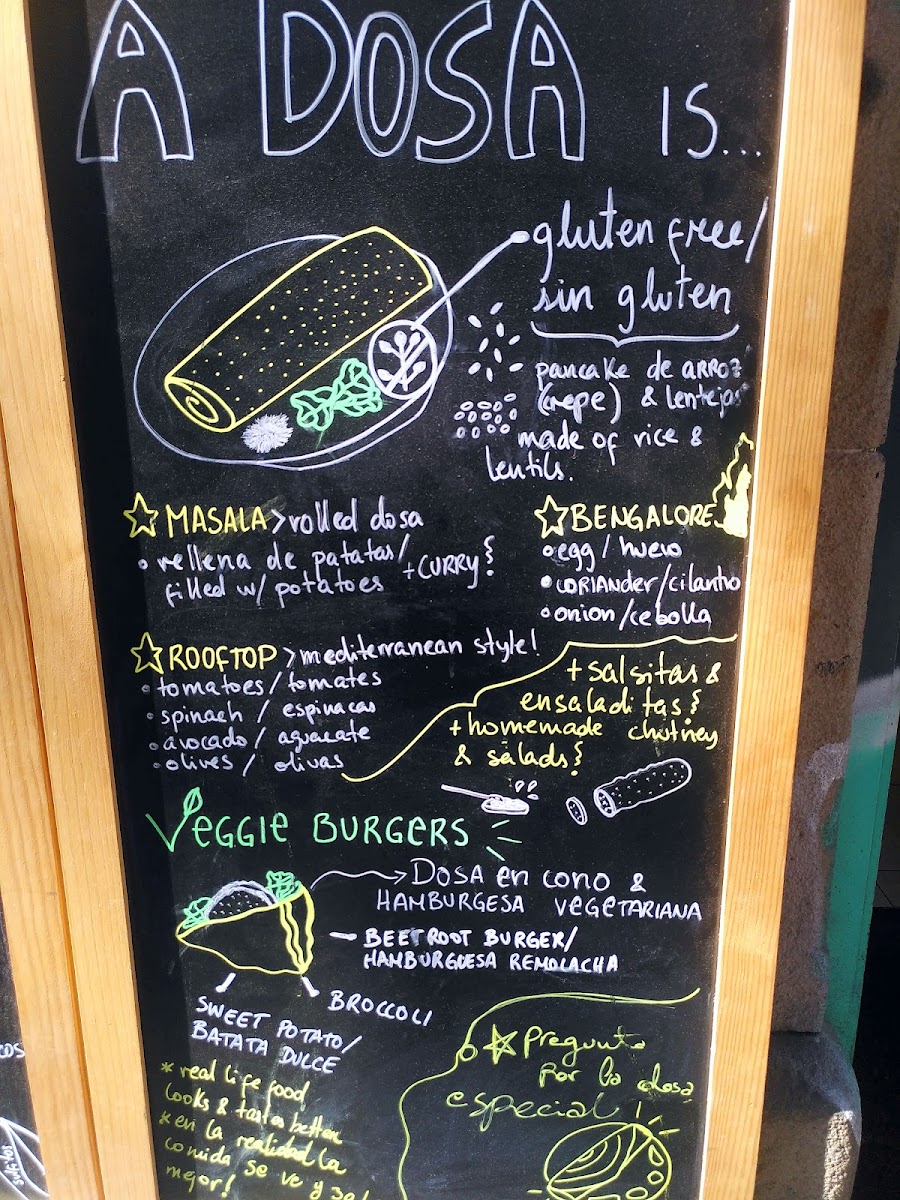 A DOSA IS...
gluten free/
sin gluten
pancake de ARROZ
(crepe) & lentejas
made of rice &
lentils.
MASALA > rolled dosa
• rellena de patatas/
filled w/ potatoes + CURRY
BENGALORE
• egg / huevo
• CORIANDER/cilantro
• onion/cebolla
ROOFTOP > mediterranean style!
• tomatoes/tomates
• spinach / espinacas
• avocado / aguacate
• olives / olivas
+ salsitas &
ensaladitas
+ homemade chutney
& salads
VEGGIE BURGERS
DOSA en cono &
HAMBURGESA VEGETARIANA
BEETROOT BURGER/
HAMBURGUESA REMOLACHA
BROCCOLI
SWEET POTATO/
BATATA DULCE
* real life food
looks & tastes better
* en la realidad la
comida se ve y
mejor!
Pregunta
por la dosa
especial
sulfitos